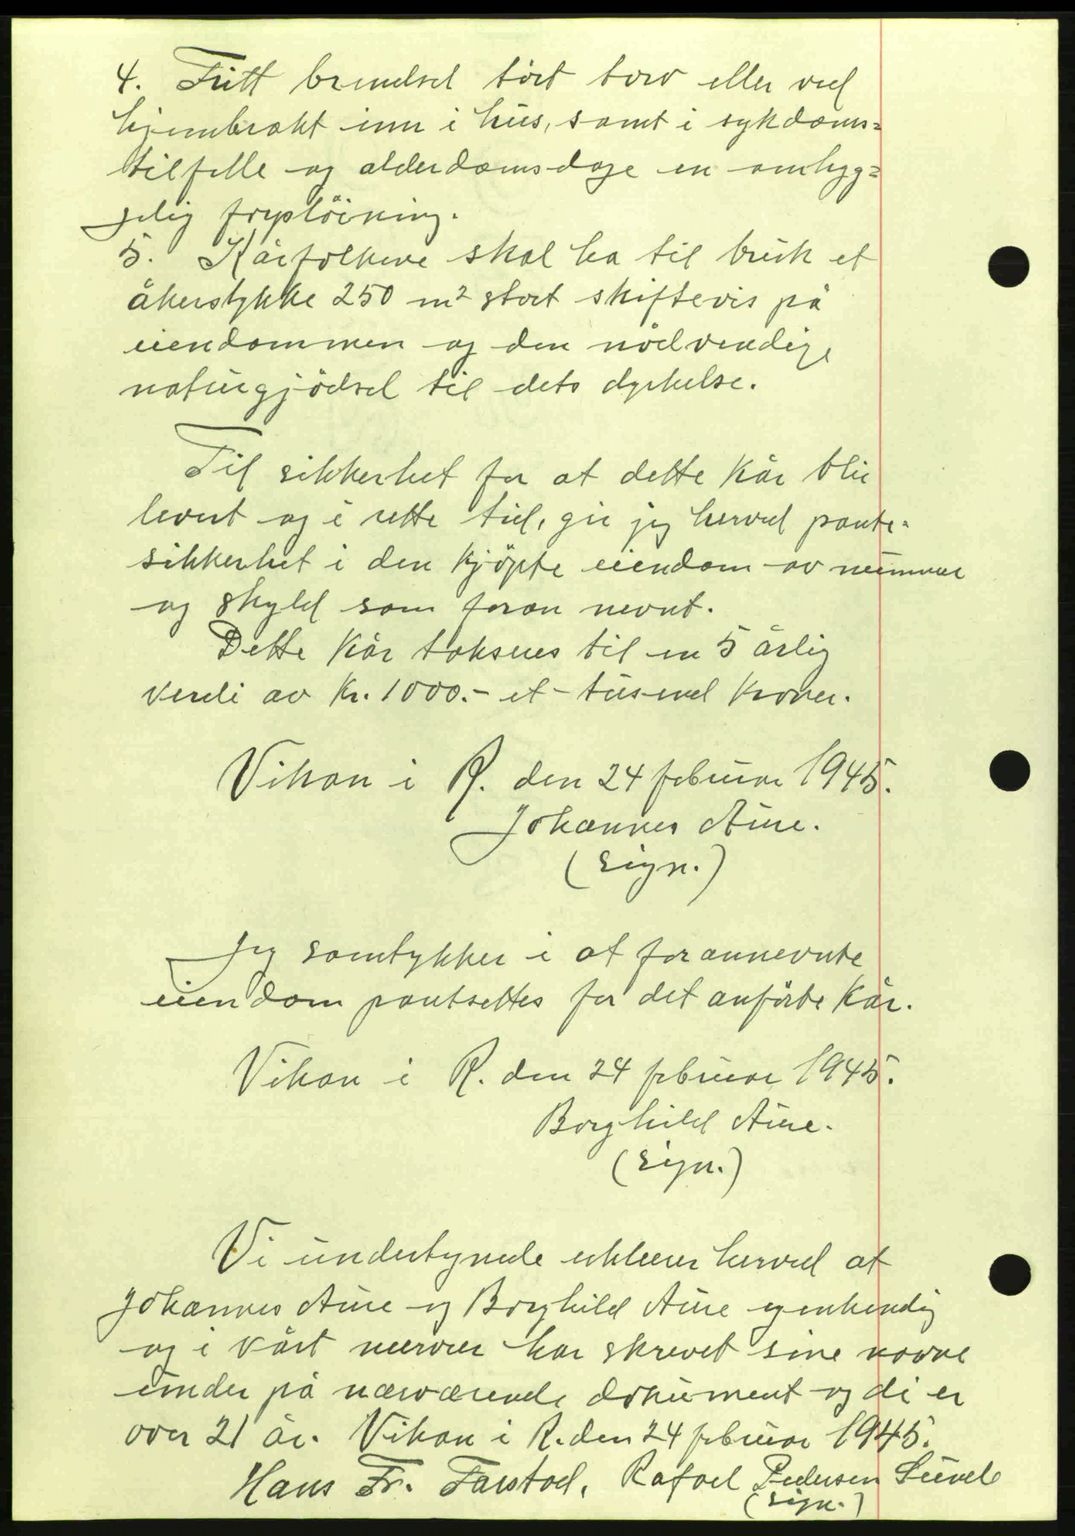 4. Fritt brendsel tört torv eller ved
hjembrakt inn i hus, samt i sykdoms=
tilfelle og alderdomsdage en omhyg=
gelig
5. Kårfolkene skal ha til bruk et
åkerstykke 250 m² stort skiftevis på
eiendommen og den nödvendige
naturgjödsel til dets dyrkelse.
Til sikkerhet for at dette kår blir
levert og i rette tid, gir jeg herved pante-
sikkerhet i den kjöpte eiendom av nummer
og skyld som foran nevnt.
Dette kår takseres til en 5 årlig
verdi av Kr. 1000.- et-tusend kroner.
Vikan i R. den 24 februar 1945.
Johannes Aure.
(sign.)
Jeg samtykker i at forannevnte
eiendom pantsettes for det anförte kår.
Vikan i R. den 24 februar 1945.
Borghild Aure.
(sign.)
Vi undertegnede erklærer herved at
Johannes Aure og Borghild Aure egenhendig
og i vårt nærvær har skrevet sine navne
under på nærværende dokument og di er
over 21 år. Vikan i R. den 24 februar 1945.
Hans Fr. Farstad, Rafael Pedersen Sunde
(sign.)